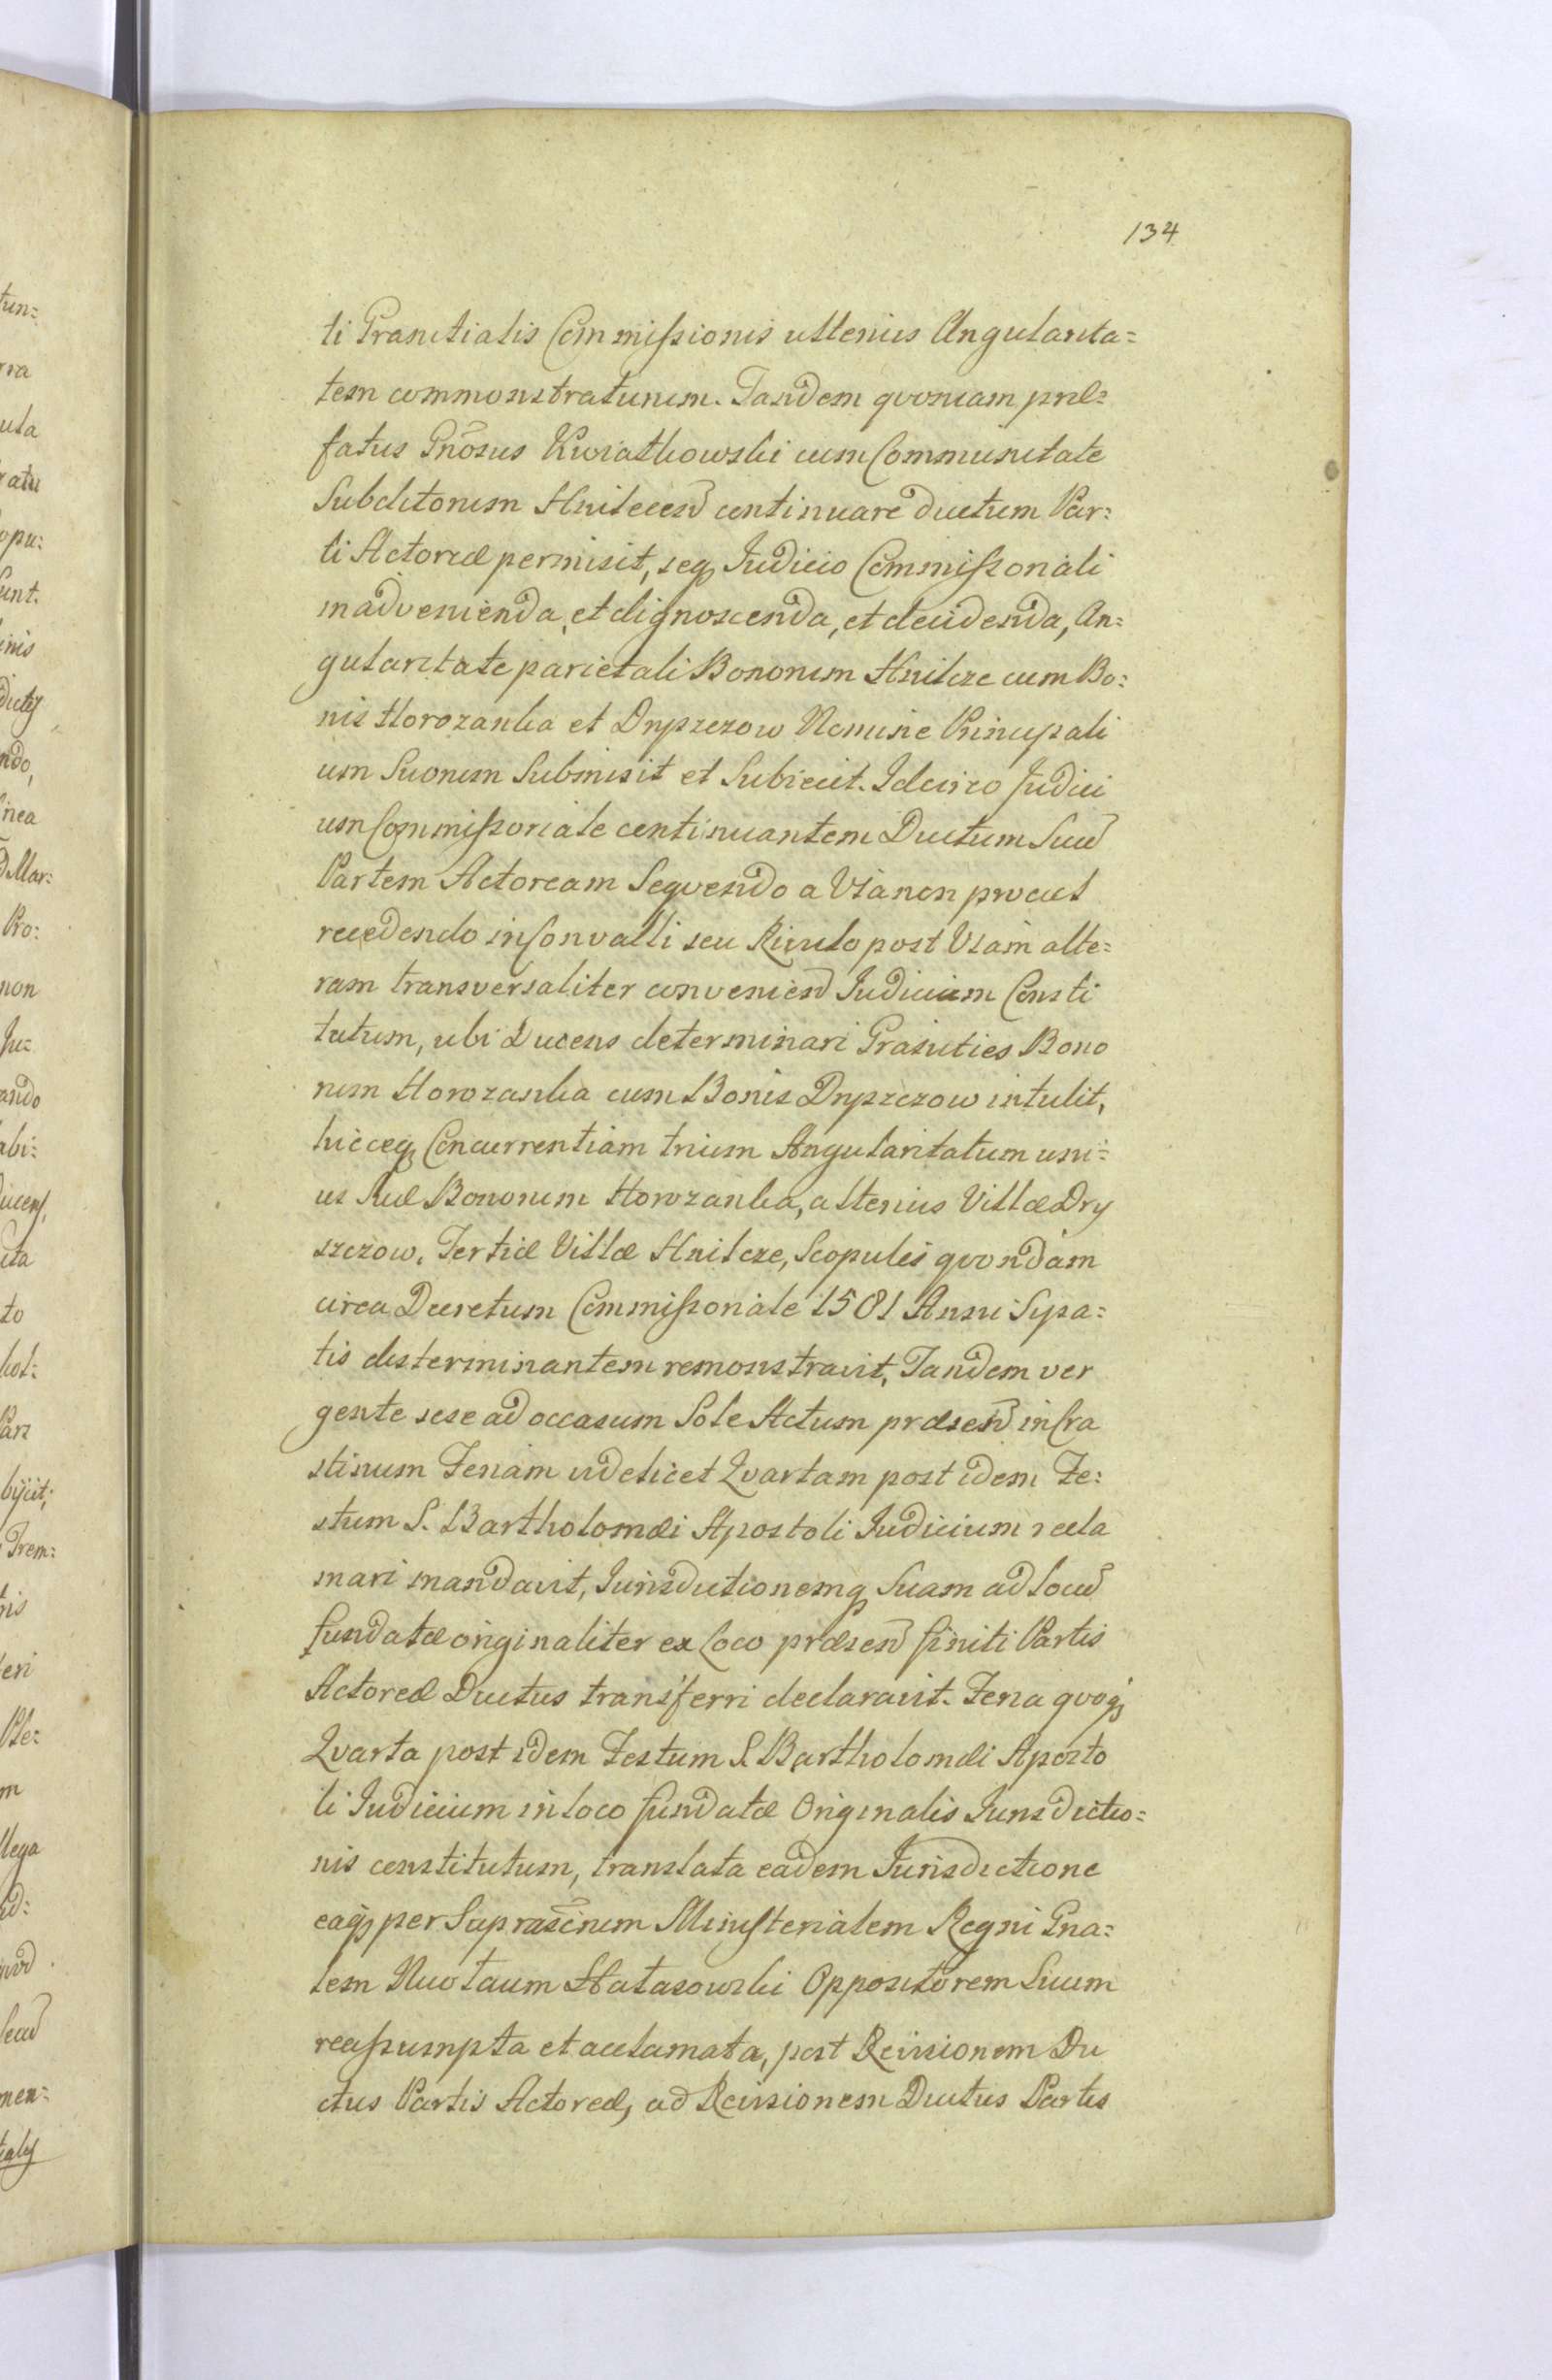 134
ti Granitialis Commissionis ulterius Angularita=
tem commonstraturum. Tandem qvoniam præ=
fatus Gnõsus Kwiatkowski cum Communitate
Subditorum Hnilecen̄ continuare ductum Par=
ti Actoreæ permisit, seq, Judicio Commissoriali
in advenienda, et dignoscenda, et decidenda, An=
gularitate parietali Bonorum Hnilcze cum Bo=
nis Horozanka et Dryszczow Nomine Principali
um Suorum Submisit et Subiecit. Idcirco Judici
um Commissoriale continuantem Ductum Suū
Partem Actoream Seqvendo a Via non procul
recedendo in Convalli seu Rivulo post Viam alte=
ram transversaliter convenien̄ Judicium Consti
tutum, ubi Ducens determinari Granities Bono
rum Horozanka cum Bonis Dryszczow intulit,
hicceq, Concurrentiam trium Angularitatum uni=
us Suæ Bonorum Horozanka, alterius Villæ Dry
szczow, Tertiæ Villæ Hnilcze, Scopulis qvondam
circa Decretum Commissoriale 1581 Anni Sypa=
tis disterminantem remonstravit, Tandem ver
gente sese ad occasum Sole Actum præsen̄ in Cra
stinum Feriam videlicet Qvartam post idem Fe=
stum S. Bartholomæi Apostoli Judicium recla
mari mandavit, Jurisdictionemq, Suam ad locū
fundatæ originaliter ex Loco præsen̄ finiti Partis
Actoreæ Ductus transferri declaravit. Feria qvoq,
Qvarta post idem Festum S. Bartholomæi Aposto
li Judicium in loco fundatæ Originalis Jurisdictio=
nis constitutum, translata eadem Jurisdictione
eaq, per Suprascrum Ministerialem Regni Gna=
lem Oppositorem Suum
reassumpta et acclamata, post Revisionem Du
ctus Partis Actoreæ, ad Revisionem Ductus Partis